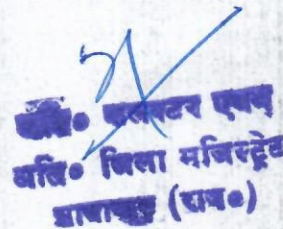 अति० कलक्टर एवम्
अति० जिला मजिस्ट्रेट
(राज०)